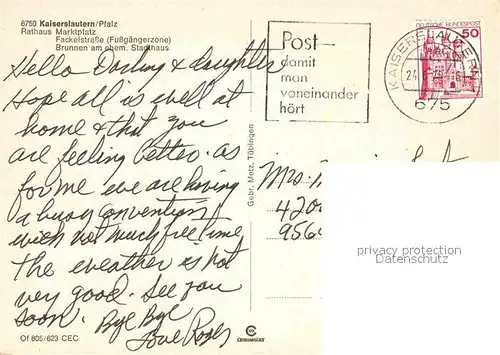 6750 Kaiserslautern/Pfalz
Rathaus Marktplatz
Fackelstraße (Fußgängerzone)
Brunnen am ehem. Stadthaus
Hello Darling & daughter
Hope all is well at
home & that you
are feeling better. as
for me we are having
a busy convention
with not much free time
the weather is not
very good. See you
soon. Bye Bye
Love
Of 805/623 CEC
Gebr. Metz, Tübingen
Post-
damit
man
voneinander
hört
DEUTSCHE BUNDESPOST
50
KAISERSLAUTERN
675
Mrs.
420
956
privacy protection